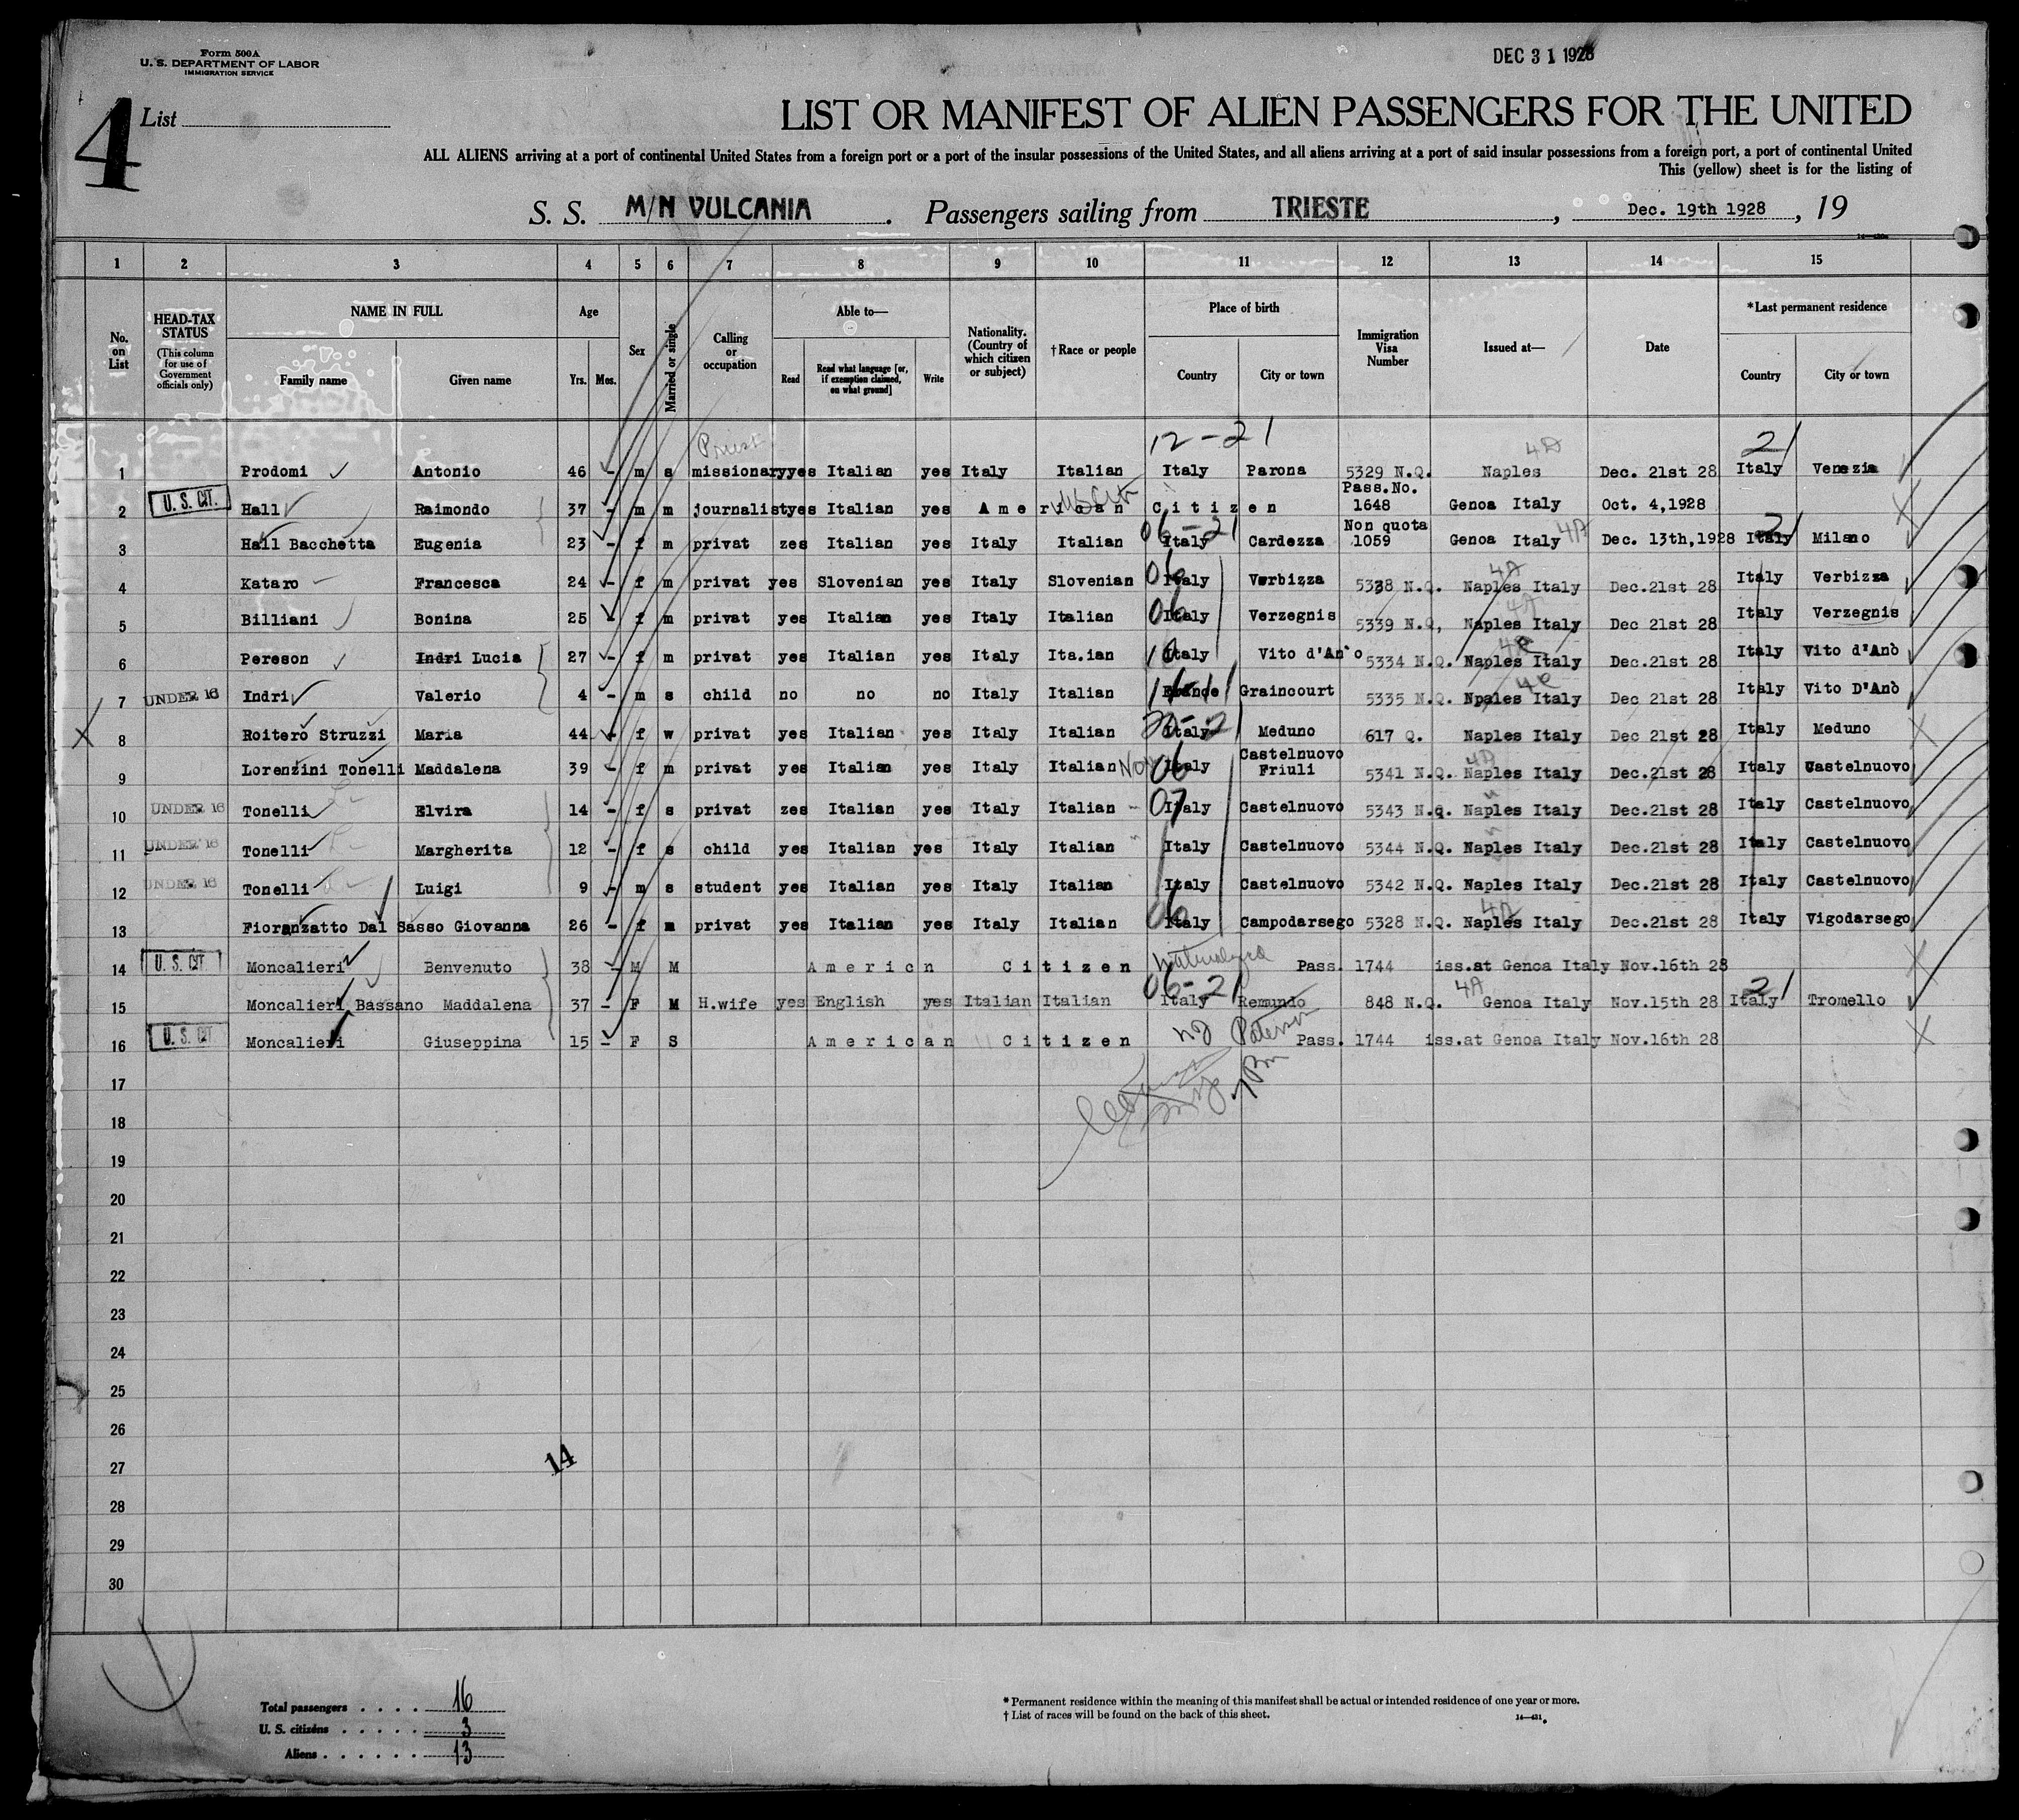 Form 500A
U. S. DEPARTMENT OF LABOR
IMMIGRATION SERVICE
DEC 31 1928
4
List
LIST OR MANIFEST OF ALIEN PASSENGERS FOR THE UNITED
ALL ALIENS arriving at a port of continental United States from a foreign port or a port of the insular possessions of the United States, and all aliens arriving at a port of said insular possessions from a foreign port, a port of continental United
This (yellow) sheet is for the listing of
S. S. M/N VULCANIA . Passengers sailing from TRIESTE , Dec. 19th 1928 , 19
1 2 3 4 5 6 7 8 9 10 11 12 13 14 15
No. on List
HEAD-TAX STATUS (This column for use of Government officials only)
NAME IN FULL Family name Given name
Age Yrs. Mos.
Sex
Married or single
Calling or occupation
Able to— Read Read what language [or, if exemption claimed, on what ground] Write
Nationality. (Country of which citizen or subject)
†Race or people
Place of birth Country City or town
Immigration Visa Number
Issued at—
Date
*Last permanent residence Country City or town
Priest 12-21 4A 21
1 Prodomi Antonio 46 - m s missionary yes Italian yes Italy Italian Italy Parona 5329 N.Q. Naples Dec. 21st 28 Italy Venezia
2 U. S. CIT. Hall Raimondo 37 - m m journalist yes Italian yes American Citizen Pass.No. 1648 Genoa Italy Oct. 4,1928
06-21 4A 21
3 Hall Bacchetta Eugenia 23 - f m privat zes Italian yes Italy Italian Italy Cardezza Non quota 1059 Genoa Italy Dec. 13th,1928 Italy Milano
4 Kataro Francesca 24 - f m privat yes Slovenian yes Italy Slovenian 06 Italy Verbizza 5338 N.Q. 4A Naples Italy Dec.21st 28 Italy Verbizza
5 Billiani Bonina 25 - f m privat yes Italian yes Italy Italian 06 Italy Verzegnis 5339 N.Q, 4A Naples Italy Dec 21st 28 Italy Verzegnis
6 Pereson Indri Lucia 27 - f m privat yes Italian yes Italy Ita.ian Italy Vito d'An`o 5334 N.Q. Naples Italy Dec.21st 28 Italy Vito d'Anò
7 UNDER 16 Indri Valerio 4 - m s child no no no Italy Italian France Graincourt 5335 N.Q. Npales Italy Dec.21st 28 Italy Vito D'Anò
8 Roitero Struzzi Maria 44 - f w privat yes Italian yes Italy Italian Italy Meduno 617 Q. Naples Italy Dec 21st 28 Italy Meduno
9 Lorenzini Tonelli Maddalena 39 - f m privat yes Italian yes Italy Italian 06 Italy Castelnuovo Friuli 5341 N.Q. 4A Naples Italy Dec.21st 28 Italy Castelnuovo
10 UNDER 16 Tonelli Elvira 14 - f s privat zes Italian yes Italy Italian 07 Italy Castelnuovo 5343 N.q. Naples Italy Dec.21st 28 Italy Castelnuovo
11 UNDER 16 Tonelli Margherita 12 - f s child yes Italian yes Italy Italian Italy Castelnuovo 5344 N.Q. Naples Italy Dec.21st 28 Italy Castelnuovo
12 UNDER 16 Tonelli Luigi 9 - m s student yes Italian yes Italy Italian Italy Castelnuovo 5342 N.Q. Naples Italy Dec.21st 28 Italy Castelnuovo
13 Fioranzatto Dal Sasso Giovanna 26 - f m privat yes Italian yes Italy Italian 06 Italy Campodarsego 5328 N.Q. 4A Naples Italy Dec.21st 28 Italy Vigodarsego
14 U. S. CIT. Moncalieri Benvenuto 38 - M M Americn Citizen Naturalized Pass. 1744 iss.at Genoa Italy Nov.16th 28
06-21 4A 21
15 Moncalieri Bassano Maddalena 37 - F M H.wife yes English yes Italian Italian Italy Remundo 848 N.Q. Genoa Italy Nov.15th 28 Italy Tromello
16 U. S. CIT Moncalieri Giuseppina 15 - F S American Citizen NJ Paterson Pass. 1744 iss.at Genoa Italy Nov.16th 28
17
18
19
20
21
22
23
24
25
26
27
14
28
29
30
Total passengers . . . . 16
U. S. citizens . . . . . 3
Aliens . . . . . . 13
* Permanent residence within the meaning of this manifest shall be actual or intended residence of one year or more.
† List of races will be found on the back of this sheet.
14—431